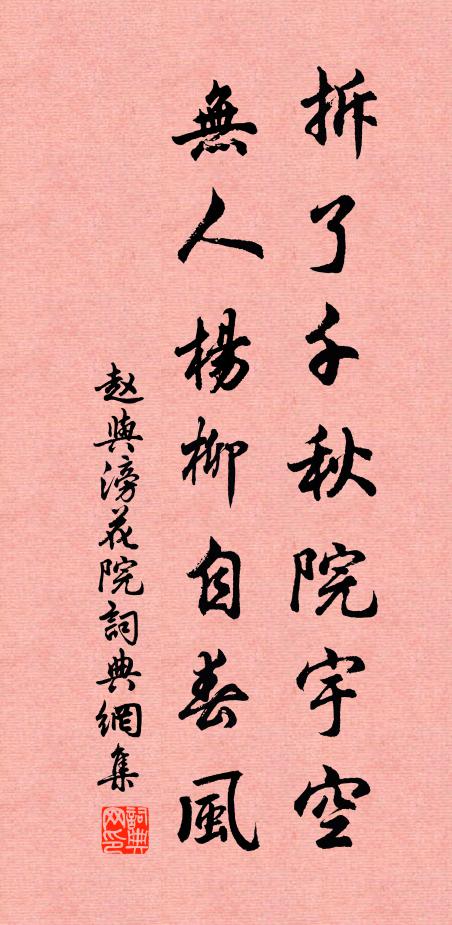 拆了千秋院宇空
無人楊柳自春風
赵與滂花院詞典網集
詞典网印